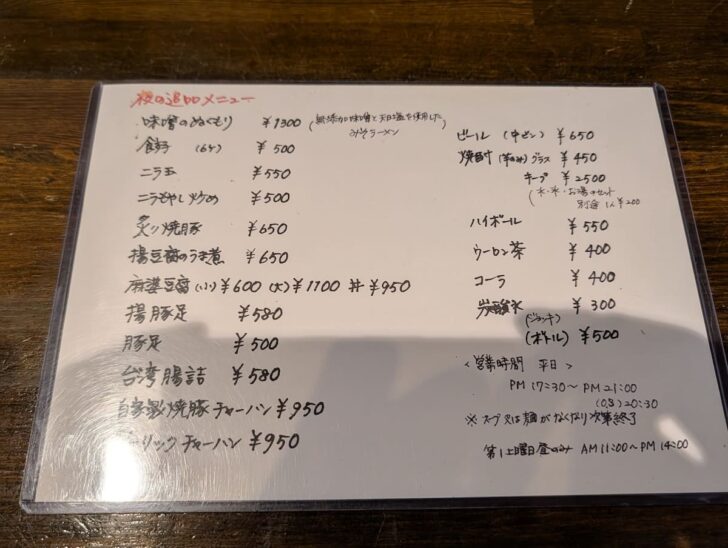 夜の追加メニュー
味噌のぬくもり ¥1300 (無添加味噌と天日塩を使用した
みそラーメン)
餃子 (6ケ) ¥500
ニラ玉 ¥550
ニラもやし炒め ¥500
炙り焼豚 ¥650
揚豆腐のうま煮 ¥650
麻婆豆腐 (小)¥600 (大)¥1100 丼¥950
揚豚足 ¥580
豚足 ¥500
台湾腸詰 ¥580
自家製焼豚チャーハン ¥950
ーリックチャーハン ¥950
ビール (中ビン) ¥650
焼酎 (芋のみ) グラス ¥450
キープ ¥2500
(水・氷・お湯のセット
別途 1人¥200
ハイボール ¥550
ウーロン茶 ¥400
コーラ ¥400
炭酸水 ¥300
(ジョッキ)
(ボトル) ¥500
<営業時間 平日>
PM 17:30~PM 21:00
(O.S)20:30
※スープ又は麺がなくなり次第終了
第1土曜日昼のみ AM 11:00~PM 14:00